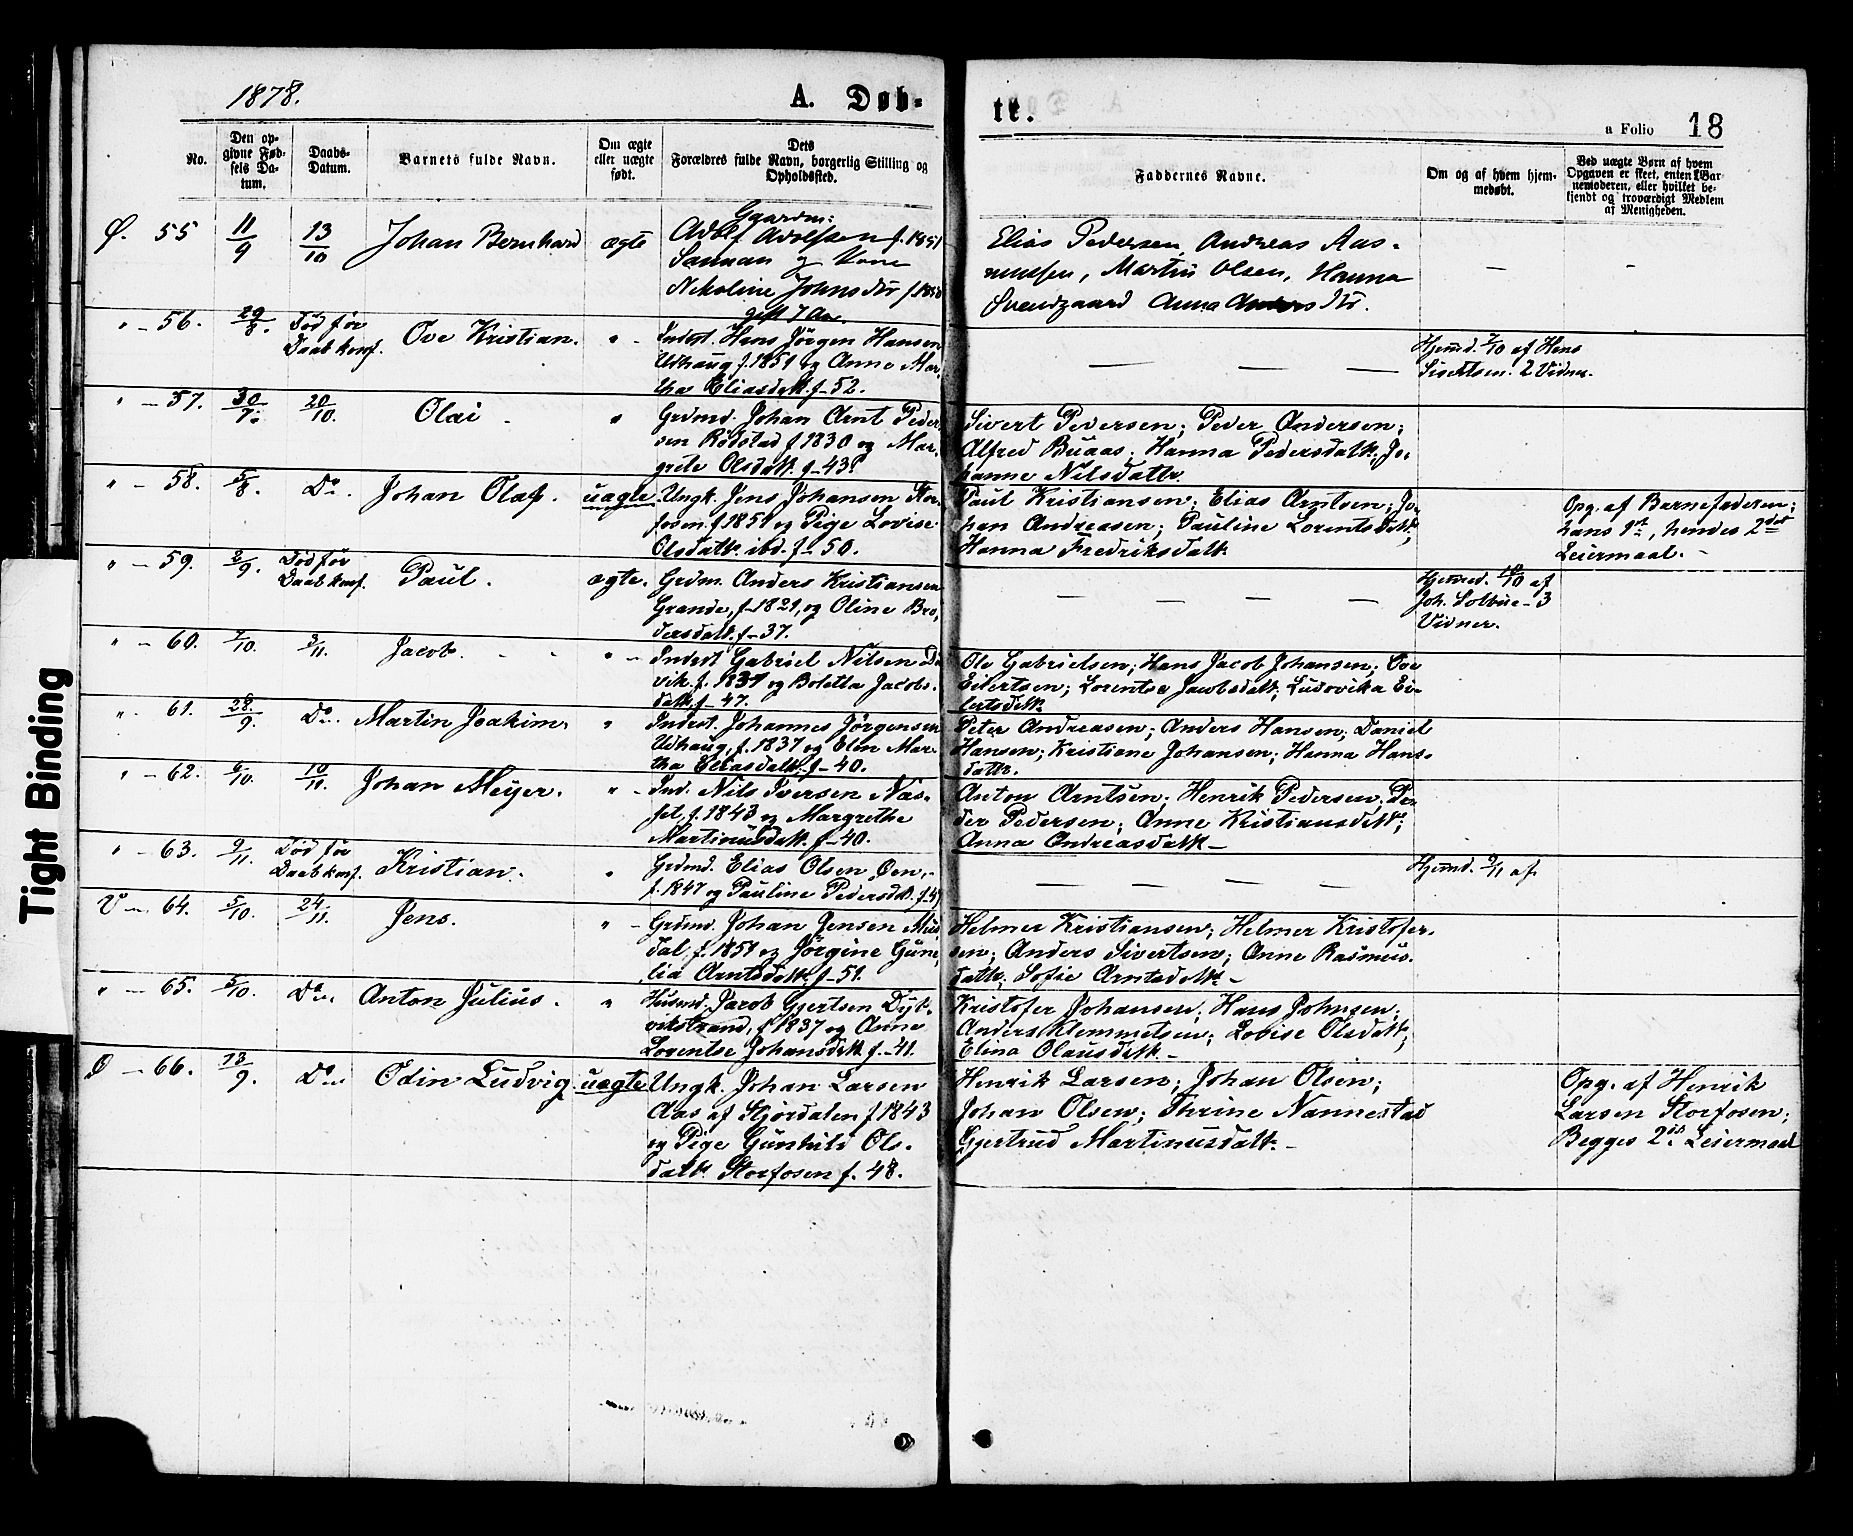 1878.
A. Døb-
te.
a Folio 18
No.
Den op-
givne Fød-
sels Da-
tum.
Daabs-
Datum.
Barnets fulde Navn.
Om ægte
eller uægte
født.
Dets
Forældres fulde Navn, borgerlig Stilling og
Opholdssted.
Faddernes Navne.
Om og af hvem hjem-
medøbt.
Ved uægte Børn af hvem
Opgaven er skeet, enten Bar-
nemoderen, eller hvilket be-
kjendt og troværdigt Medlem
af Menigheden.
Ø. 55 11/9 13/10 Johan Bernhard ægte
Gaardm:
Adolf Adolfsen f. 1851
og Kone
Nikoline Johnsdtr f. 1850
gift 7 Aar.
Elias Pedersen, Andreas Aas-
mussen, Martin Olsen, Hanna
Svendgaard Anna Andersdtr.
" - 56. 29/8. Død før
Daab konf. Ove Kristian. "
Inderst. Hans Jørgen Hansen
Udhaug f. 1851 og Anne Mar-
tha Eliasdatt. f. - 52.
Hjemd. 2/10 af Hans
Sivertsen. 2 Vidner.
" - 57. 30/7. 20/10. Olai "
Grdmd. Johan Arnt Peder-
sen Rødstad f. 1830 og Mar-
grete Olsdatt. f. - 43.
Sivert Pedersen; Peder Andersen;
Alfred Buaas; Hanna Pedersdatt.; Jo-
hanne Nilsdattr.
" - 58. 5/8. Do. Johan Olaf. uægte
Ungk. Jens Johansen Stor-
fosen f. 1851 og Pige Lovise
Olsdatt. ibd. f. - 50.
Paul Kristiansen; Elias Arntsen; Jo-
han Andreasen; Pauline Lorentsdatt;
Hanna Fredriksdatt.
Opg. af Barnefaderen;
hans 1st, hendes 2det
Leiermaal. -
" - 59. 2/9. Død før
Daab konf. Paul. ægte.
Grdm. Anders Kristiansen
Grande, f. - 1821, og Oline Bro-
dersdatt. f. - 37.
Hjemmed. 10/10 af
Joh. Solbue - 3
Vidner.
" - 60. 7/10. 3/11. Jacob. "
Inderst Gabriel Nilsen
vik. f. 1837 og Boletta Jacobs-
datt. f. - 47.
Ole Gabrielsen; Hans Jacob Johansen; Ove
Eilertsen; Lorentse Jacobsdatt; Ludovika Ei-
lertsdatt.
" - 61. 28/9. Do. Martin Joakim. "
Inderst. Johannes Jørgensen
Udhaug, f. 1837 og Elen Mar-
tha Eliasdatt. f. - 40.
Peter Andreasen; Anders Hansen; Daniel
Hansen; Kristiane Johansen; Hanna Hans-
datt.
" - 62. 6/10. 10/11. Johan Meyer. "
Ind. Nils Iversen Næs-
set, f. 1843 og Margrethe
Martinusdatt. f. - 40.
Anton Arntsen; Henrik Pedersen; Pe-
der Pedersen; Anne Kristiansdatt;
Anna Andreasdatt -
" - 63. 9/11. Død før
Daab konf. Kristian. "
Grdmd. Elias Olsen Øen,
f. 1847 og Pauline Pedersdatt. f. 47
Hjemd. 9/11 af
V - 64. 5/10. 24/11. Jens. "
Grdmd. Johan Jensen Mus-
dal, f. 1851 og Jørgine Gune-
lia Arntsdatt. f. - 51.
Helmer Kristiansen; Helmer Kristofer-
sen; Anders Sivertsen; Anne Rasmus-
datt; Sofie Arntsdatt -
" - 65. 5/10. Do. Anton Julius. "
Husmd. Jacob Gjertsen Dyb-
vikstrand, f. 1837 og Anne
Lorentse Johansdatt. f. - 41.
Kristofer Johansen; Hans Johnsen;
Anders Klemmetsen; Lovise Olsdatt;
Elina Olausdatt. -
Ø - 66. 13/9. Do. Odin Ludvig. uægte
Ungk. Johan Larsen
Aas af Stjørdalen f. 1843
og Pige Gunhild Ols-
datt. Storfosen f. 48.
Henrik Larsen; Johan Olsen;
Johan Olsen; Thrine Nannestad
Gjertrud Martinusdatt. -
Opg. af Henrik
Larsen Storfosen;
Begges 2det Leiermaal
Tight Binding